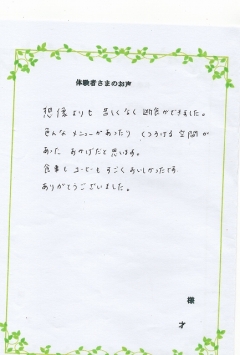 体験者さまのお声
想像よりも苦しくなく断食ができました。
色んなメニューがあったり くつろげる空間が
あった おかげだと思います。
食事も コーヒーも すごく おいしかったです
ありがとうございました。
様
才